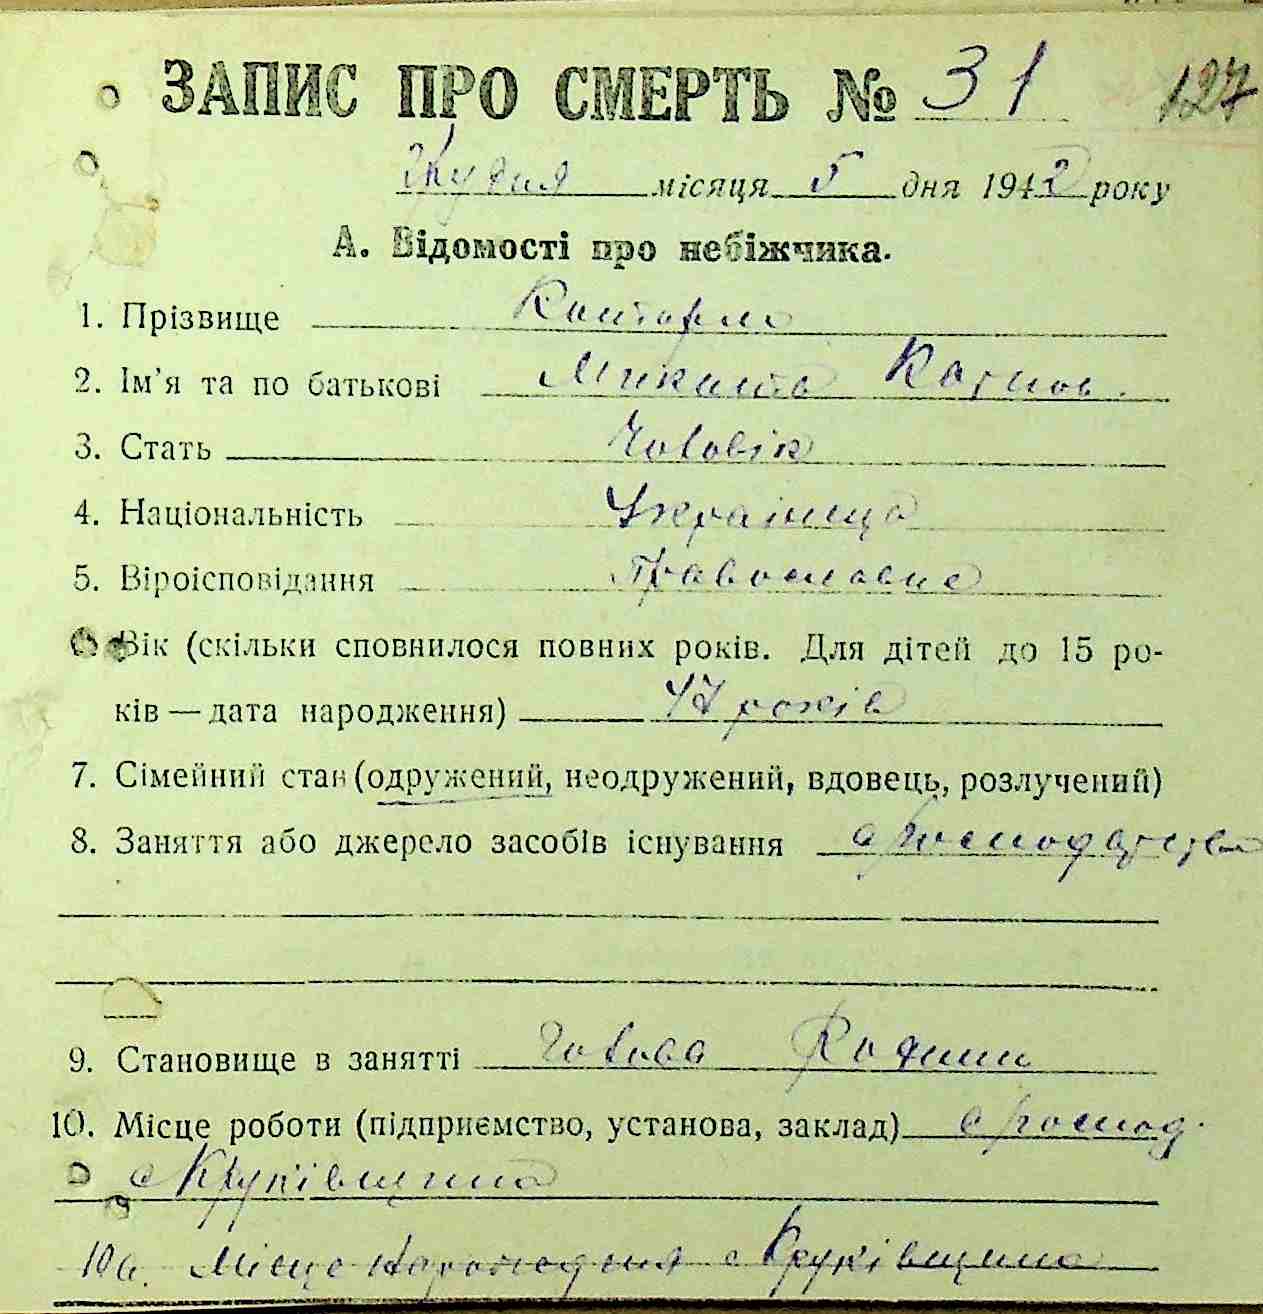 ЗАПИС ПРО СМЕРТЬ № 31 127
Грудня місяця 5 дня 1942 року
А. Відомості про небіжчика.
1. Прізвище
2. Ім’я та по батькові Микита
3. Стать Чоловік
4. Національність Українець
5. Віроісповідання Православне
Вік (скільки сповнилося повних років. Для дітей до 15 ро-
ків — дата народження) 47 років
7. Сімейний стан (одружений, неодружений, вдовець, розлучений)
8. Заняття або джерело засобів існування
9. Становище в занятті Голова Родини
10. Місце роботи (підприємство, установа, заклад) с господ.
с Круківщина
10а. Місце народження с Круківщина